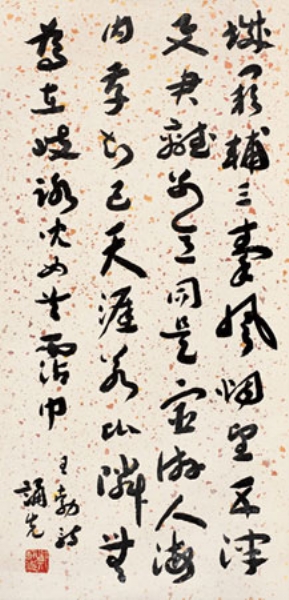 城闕輔三秦風烟望五津
与君離別意同是宦游人海
内存知己天涯若比隣無
為在岐路兒女共霑巾
王勃詩
誦先